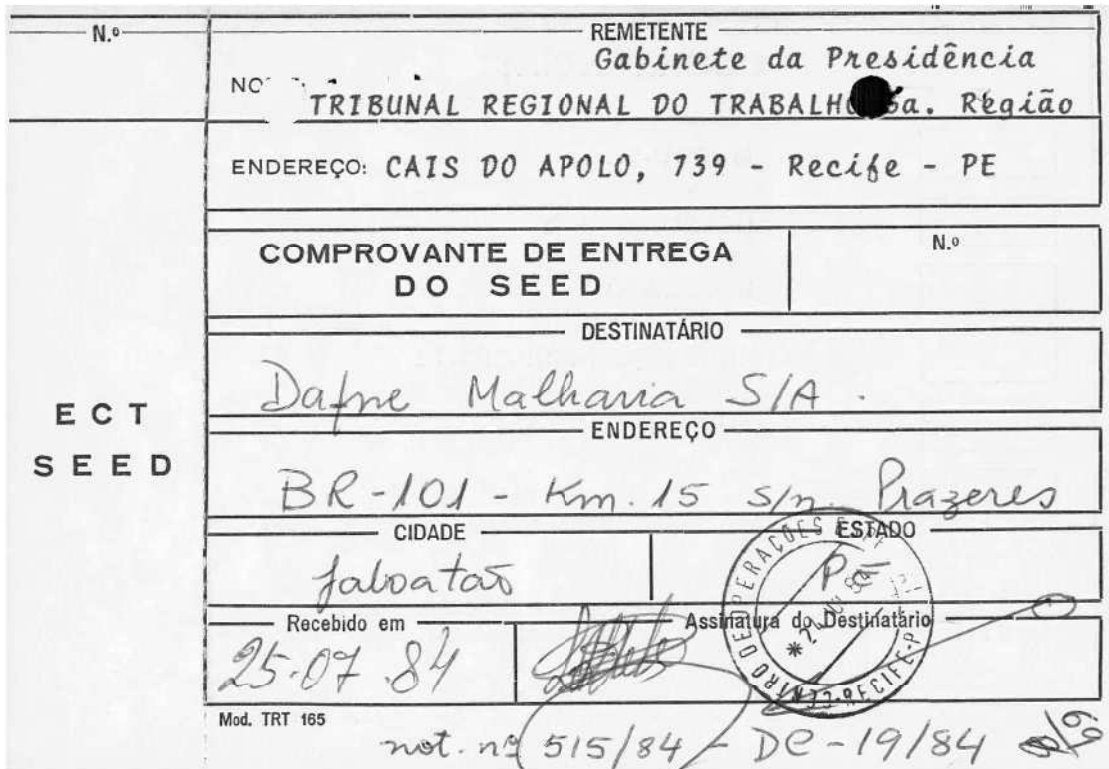 N.º
REMETENTE
Gabinete da Presidência
TRIBUNAL REGIONAL DO TRABALHO 6a. Região
ENDEREÇO: CAIS DO APOLO, 739 - Recife - PE
COMPROVANTE DE ENTREGA
DO SEED
N.º
DESTINATÁRIO
Dafne Malharia S/A.
ENDEREÇO
BR-101 - Km. 15 s/n. Prazeres
CIDADE
ESTADO
Jaboatão
Pe
Recebido em
Assinatura do Destinatário
25.07.84
ECT
SEED
Mod. TRT 165
not. nº 515/84 - DC - 19/84